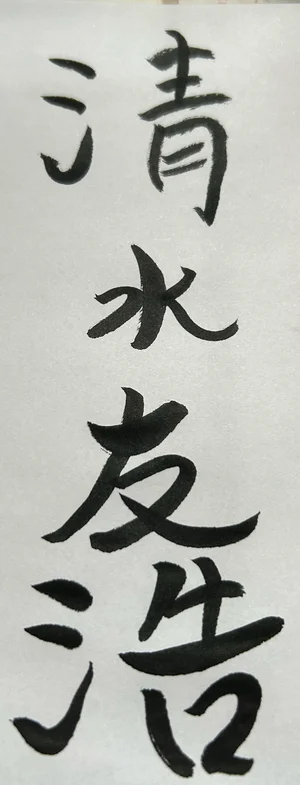 清水友浩